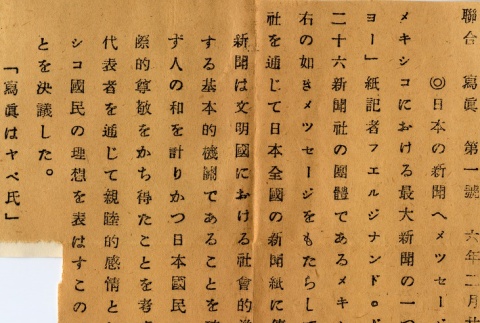 聯合 寫眞 第一號 六年二月廿
◎日本の新聞へメツセージ
メキシコにおける最大新聞の一つ
ヨー」紙記者フエルジナンド。ド
二十六新聞社の團體であるメキ
右の如きメツセージをもたらして
社を通じて日本全國の新聞紙に
新聞は文明國における社會的
する基本的機關であることを
ず人の和を計りかつ日本國民
際的尊敬をかち得たことを考
代表者を通じて親陸的感情と
シコ國民の理想を表はすこの
とを決議した。
「寫眞はヤベ氏」